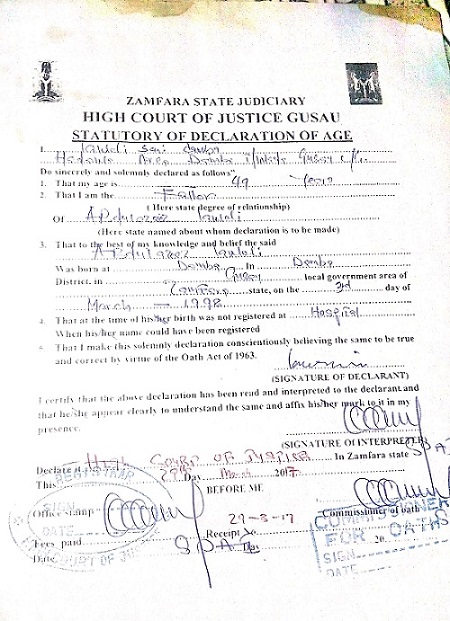 ZAMFARA STATE JUDICIARY
HIGH COURT OF JUSTICE GUSAU
STATUTORY OF DECLARATION OF AGE
I. Lawali Sani Damba
Area Damba Gusau
Do sincerely and solemnly declared as follows"
1. That my age is 49 Years
2. That I am the Father
( Here state degree of relationship)
Of Abdulazeez Lawali
(Here state named about whom declaration is to be made)
3. That to the best of my knowledge and belief the said
Abdulazeez Lawali
Was born at Damba In Damba
District, in Gusau local government area of
Zamfara state, on the 3rd day of
March 1998
a. That at the time of his/her birth was not registered at Hospital
When his/her name could have been registered
That I make this solemnly declaration conscientiously believing the same to be true
and correct by virtue of the Oath Act of 1963.
(SIGNATURE OF DECLARANT)
I certify that the above declaration has been read and interpreted to the declarant and
that he/she appear clearly to understand the same and affix his/her mark to it in my
presence.
(SIGNATURE OF INTERPRETER)
Declare at High Court OF Justice In Zamfara state
This 29 Day 2017
BEFORE ME
Office stamp Commissioner of oath
29-3-17
Fees paid Receipt No
Date Day 20
COMMISSIONER
FOR OATHS
SIGN
DATE